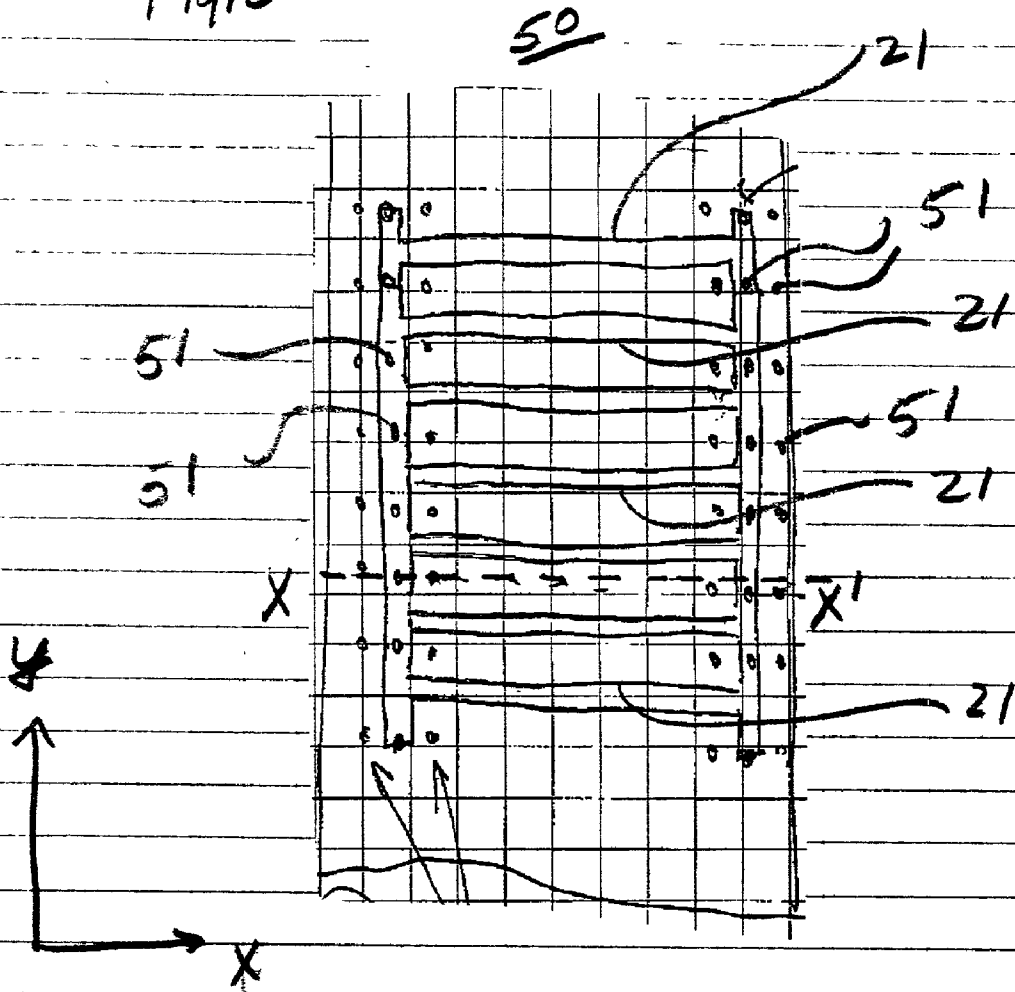 50
21
51
21
51
51
51
21
X X'
y
21
X